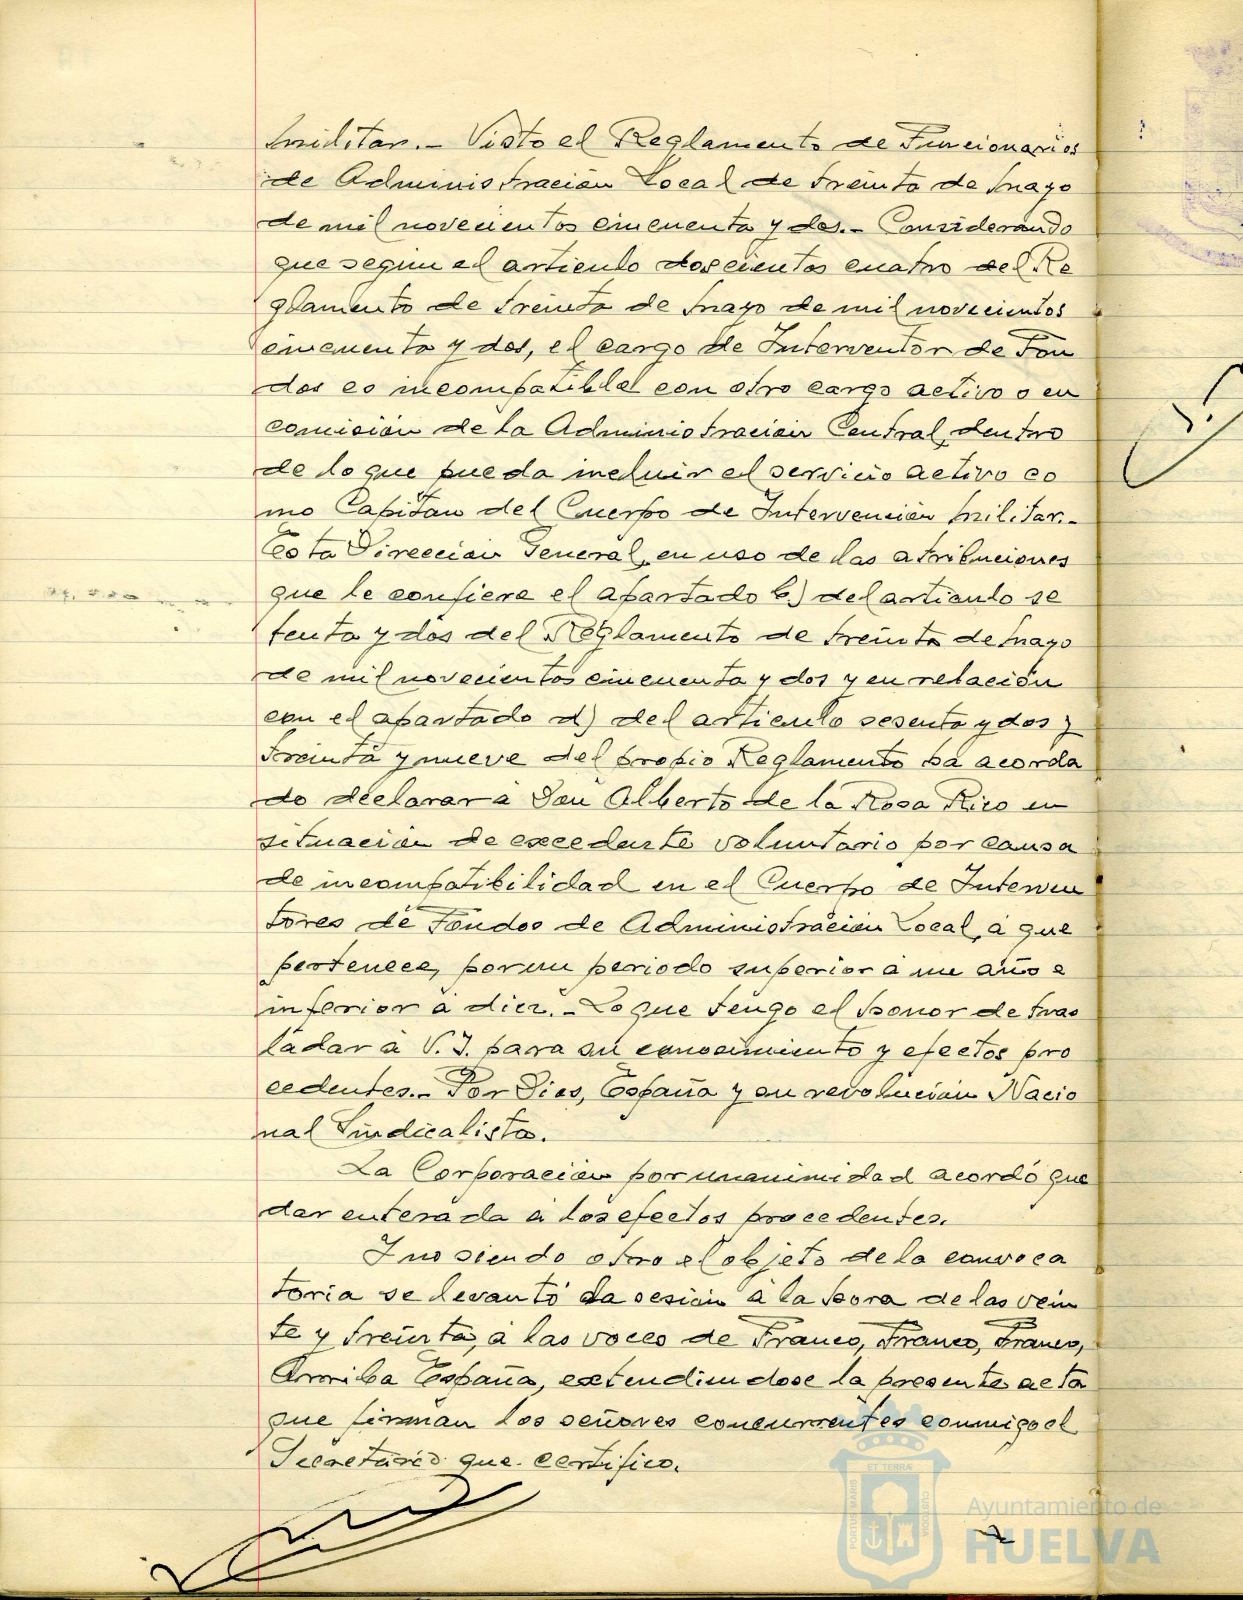 militar.- Visto el Reglamento de Funcionarios
de Administración Local de treinta de mayo
de mil novecientos cincuenta y dos.- Considerando
que segun el articulo doscientos cuatro del Re
glamento de treinta de mayo de mil novecientos
cincuenta y dos, el cargo de Interventor de Fon
dos es incompatible con otro cargo activo o en
comisión de la Administración Central, dentro
de lo que pueda incluir el servicio activo co
mo Capitan del Cuerpo de Intervención militar.-
Esta Dirección General, en uso de las atribuciones
que le confiere el apartado b) del articulo se
tenta y dos del Reglamento de treinta de mayo
de mil novecientos cincuenta y dos y en relación
con el apartado d) del articulo sesenta y dos y
treinta y nueve del propio Reglamento ha acorda
do declarar á Don Alberto de la Rosa Rico en
situación de excedente voluntario por causa
de incompatibilidad en el Cuerpo de Interven
tores de Fondos de Administración Local, á que
pertenece, por un periodo superior á un año e
inferior á diez.- Lo que tengo el honor de tras
ladar á V. I. para su conocimiento y efectos pro
cedentes.- Por Dios, España y su revolución Nacio
nal Sindicalista.
La Corporación por unanimidad acordó que
dar enterada á los efectos procedentes.
Y no siendo otro el objeto de la convoca
toria se levantó la sesión á la hora de las vein
te y treinta, á las voces de Franco, Franco, Franco,
Arriba España, extendiendose la presente acta
que firman los señores concurrentes conmigo el
Secretario que certifico.
ET TERRÆ
PORTUS MARIS
CUSTODIA
Ayuntamiento de
HUELVA